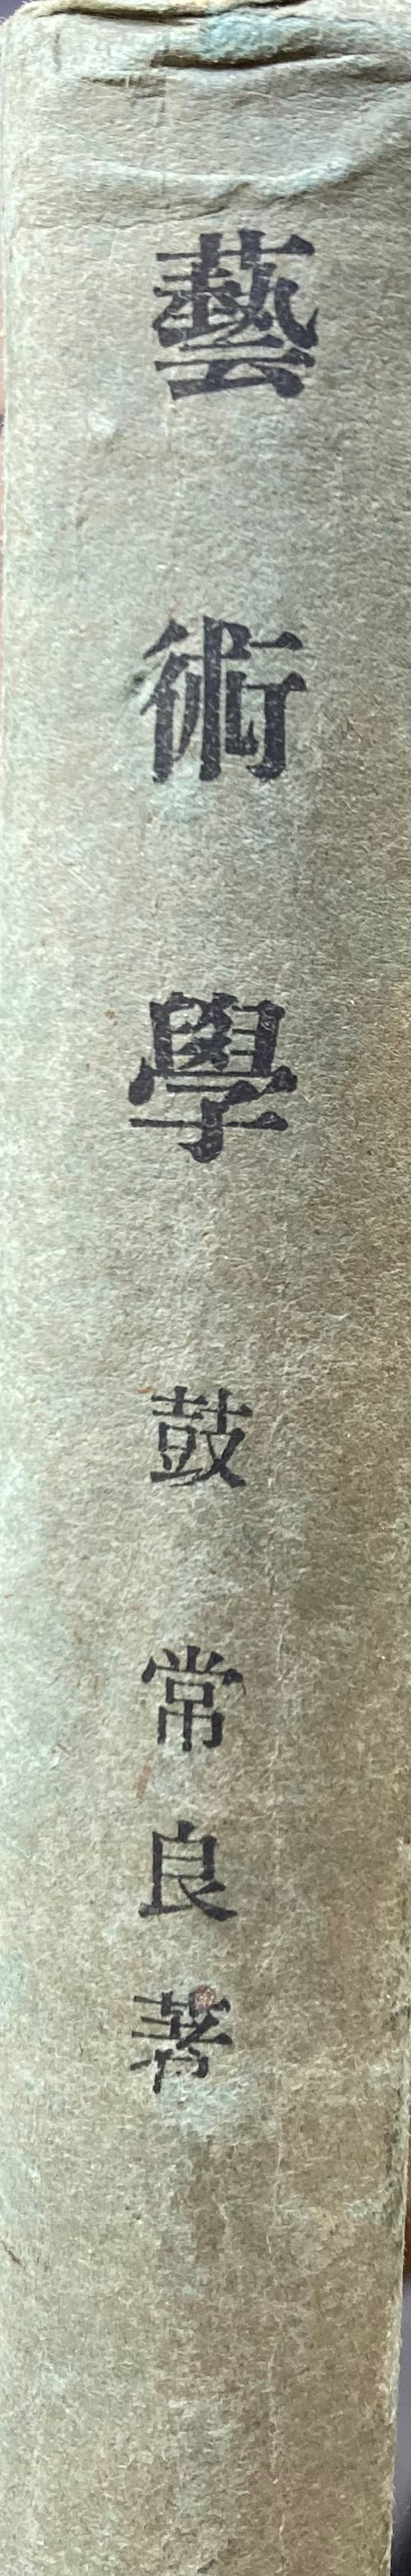 藝術學
鼓常良著